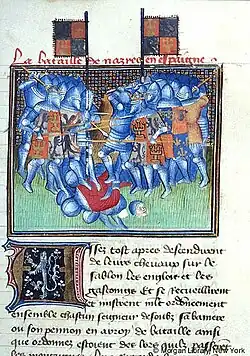 La bataille de nazres en espaigne
Assez tost apres descendirent
de leurs chevaux sur le
sablon les englois et les
gascoings Et se recueillirent
et mistrent moult ordonneement
ensemble chascun seigneur desoubz sa baniere
ou son pennon en arroy de bataille ainsi
que ordonnez estoient
© Morgan Library, New York